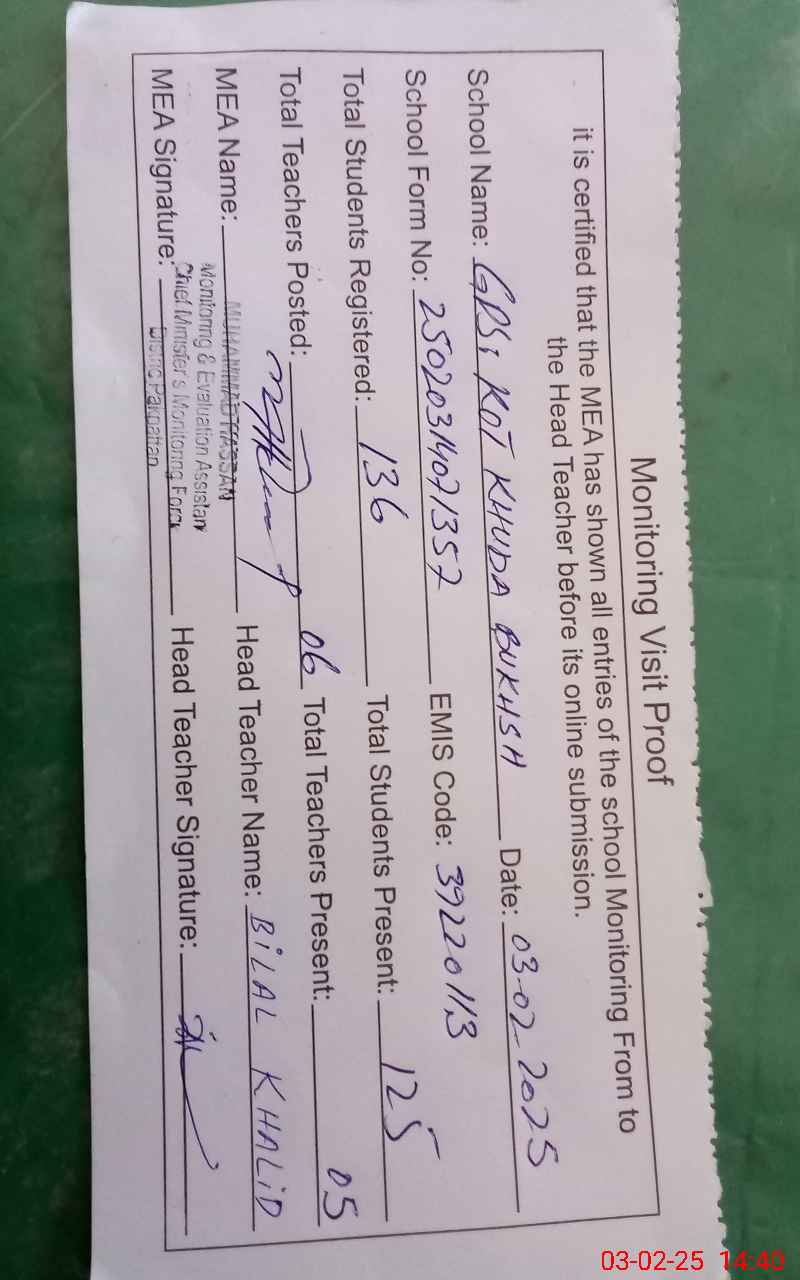 Monitoring Visit Proof
it is certified that the MEA has shown all entries of the school Monitoring From to
the Head Teacher before its online submission.
School Name: GPS, KOT KHUDA BUKHSH Date: 03-02-2025
School Form No: 25020314071357 EMIS Code: 39220113
Total Students Registered: 136 Total Students Present: 125
Total Teachers Posted: 06 Total Teachers Present: 05
MEA Name: MUHAMMAD HASSAN Head Teacher Name: BiLAL KHALiD
Monitoring & Evaluation Assistant
MEA Signature: Chief Minister's Monitoring Force Head Teacher Signature:
Pakpattan
03-02-25 14:40